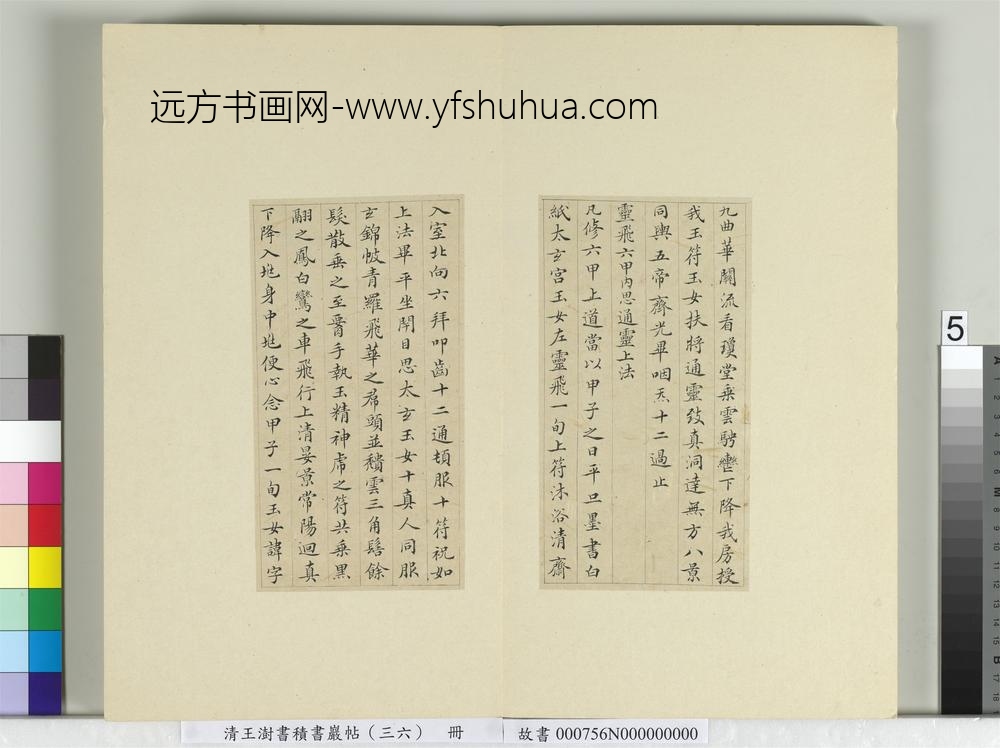 远方书画网-www.yfshuhua.com
九曲華關流看瓊堂乘雲騁轡下降我房授
我玉符玉女扶將通靈致真洞達無方八景
同輿五帝齊光畢咽炁十二過止
靈飛六甲內思通靈上法
凡修六甲上道當以甲子之日平旦墨書白
紙太玄宮玉女左靈飛一旬上符沐浴清齋
入室北向六拜叩齒十二通頓服十符祝如
上法畢平坐閉目思太玄玉女十真人同服
玄錦帔青羅飛華之帬頭並穨雲三角髻餘
髮散垂之至腰手執玉精神虎之符共乘黑
翮之鳳白鸞之車飛行上清晏景常陽迴真
下降入地身中地便心念甲子一旬玉女諱字
清王澍書積書巖帖（三六） 冊
故書 000756N000000000
5